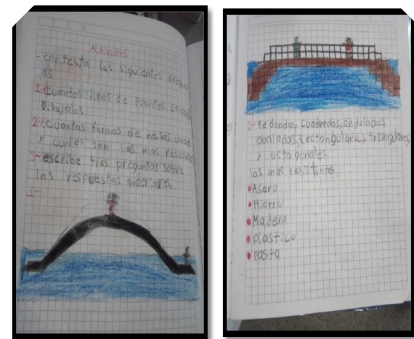 Actividad
-contesta las siguientes pregun
as
1-¿cuantos tipos de Puentes conoces
Dibujalos
2-¿cuantas formas de mesas conoces
y cuales son las mas resistentes
3-escribe tres preguntas sobre
las respuestas anteriores
1-
2-redondas, cuadradas, anguladas
obaladas, rectangulares, triangulares
y octagonales
las mas resistente
•Acero
•Hierro
•Madera
•plastico
•pasta